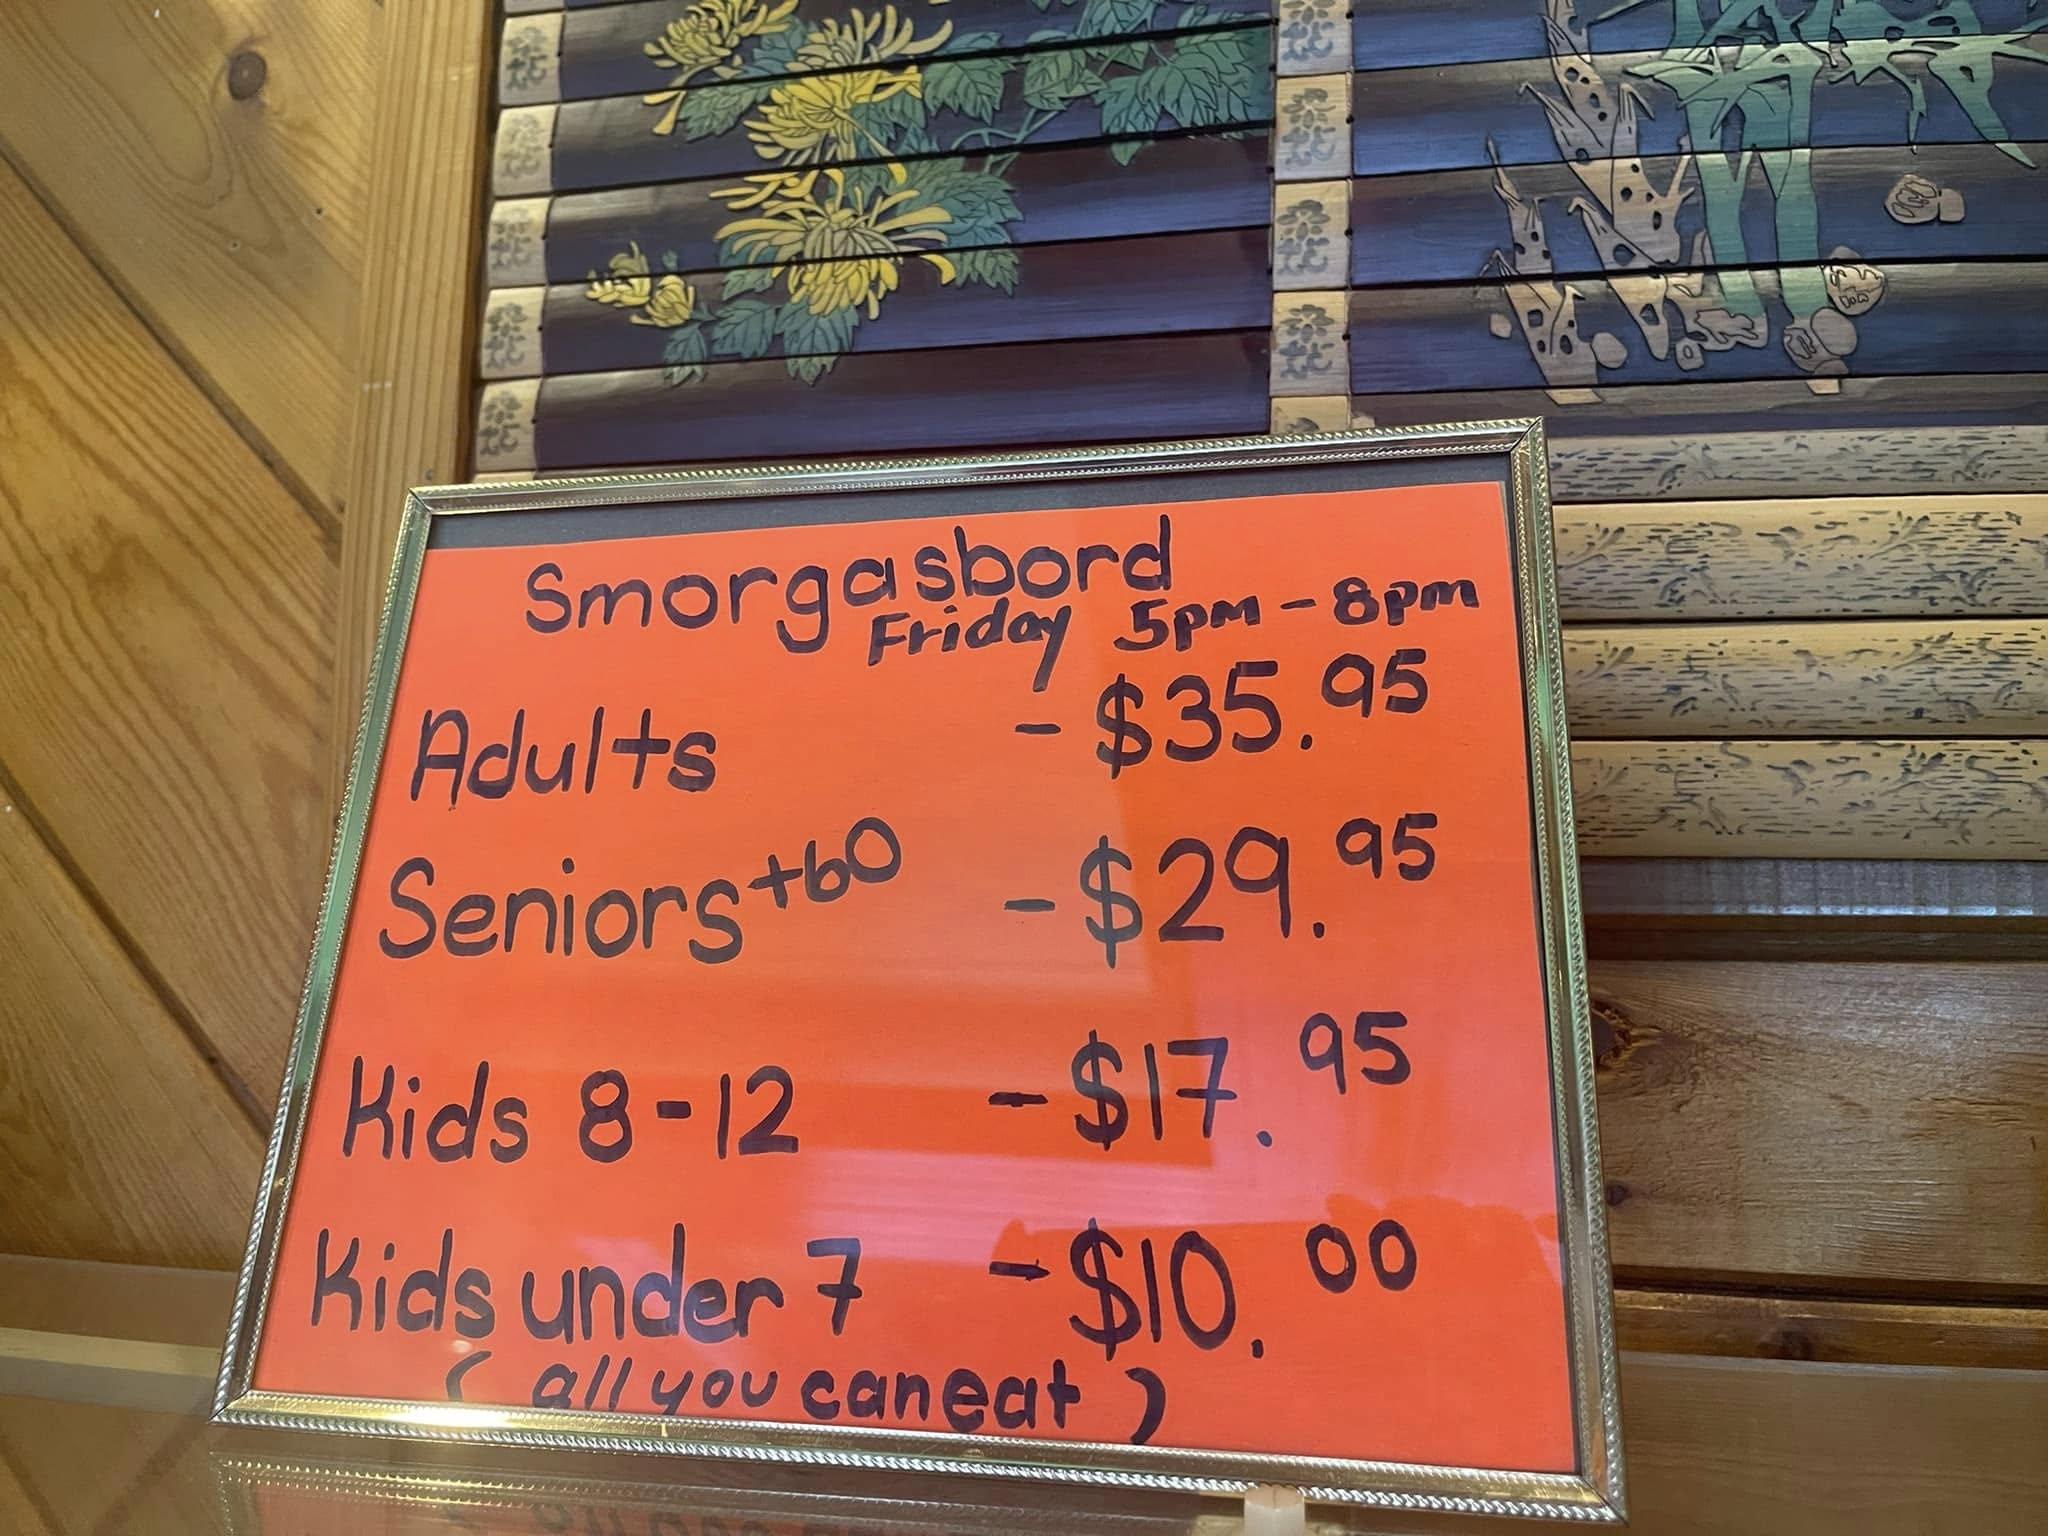 Smorgasbord
Friday 5pm - 8pm
Adults - $35.95
Seniors +60 - $29.95
Kids 8-12 - $17.95
Kids under 7 - $10.00
(all you can eat)